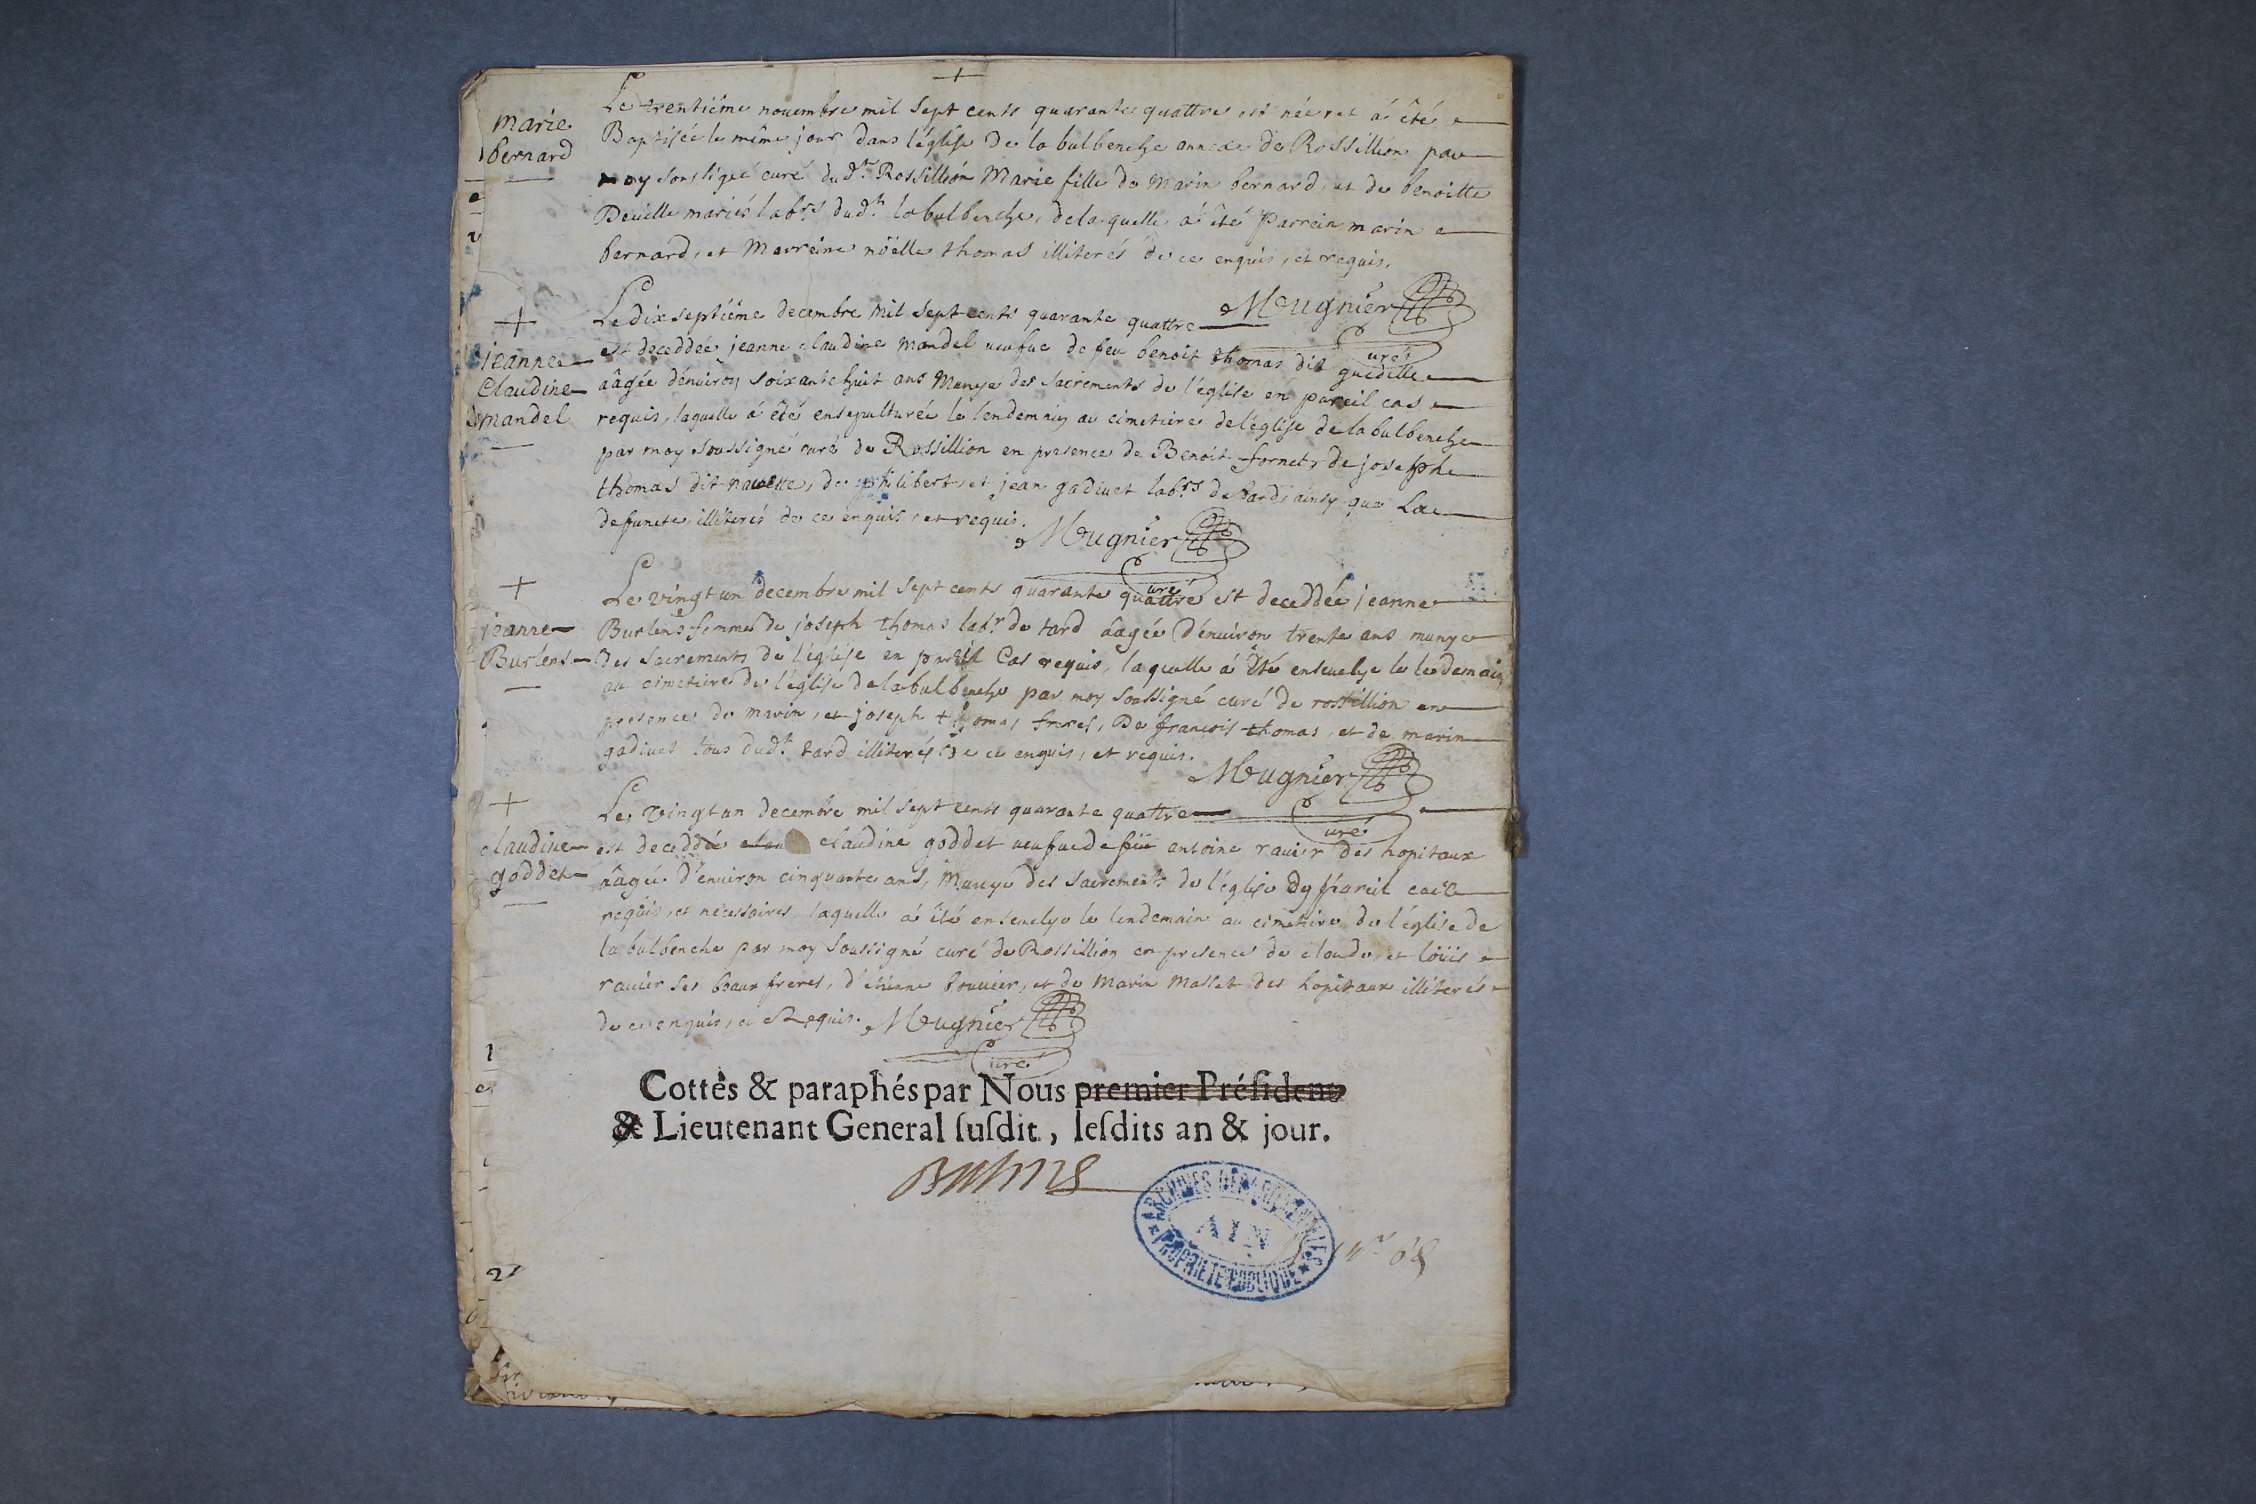 marie
bernard
Le trentiéme nouembre mil sept cents quarante quattre est née, et á été
Baptisée le même jour dans l'églisse De la bulbenche annexe de Rossillion par
moy soussigné curé dud.t Rossillion Marie fille de Marin bernard, et de benoitte
mariés lab.rs dud.t la bulbenche, de laquelle á été Parrein marin
bernard, et Marreine nöelle thomas illiterés de ce enquis, et requis.
Mugnier
curé
jeanne
Claudine
mandel
Le dix septiéme decembre mil sept cents quarante quattre
est deceddée jeanne claudine mandel ueufue de feu benoit thomas dit guedille
âagée d'enuiron soixante huit ans Munye des sacrements de l'église en pareil cas
requis, laquelle á été ensepulturée le lendemain au cimetiere de l'églisse de la bulbenche
par moy soussigné curé de Rossillion en presence de Benoit fornet, de josephe
thomas dit nauette, de philibert, et jean gadiuet lab.rs de tard, ainsy que La
defuncte, illiterés de ce enquis, et requis.
Mugnier
curé
jeanne
Burlens
Le vingt un decembre mil sept cents quarante quattre est deceddée jeanne
Burlens femme de joseph thomas lab.r de tard âagée d'enuiron trente ans munye
des sacrements de l'églisse en pareil Cas requis, laquelle á été enseuelye le lendemain
au cimetiere de l'églisse de la bulbenche par moy soussigné curé de rossillion en
presence de marin, et joseph thomas freres, De francois thomas, et de marin
gadiuet tous dud.t tard illiterés De ce enquis, et requis.
Mugnier
curé
claudine
goddet
Le vingt un decembre mil sept cents quarante quattre
est deceddée claudine goddet ueufue de feu antoine rauier des hopitaux
âagée d'enuiron cinquante ans, Munye des sacrements de l'église en pareil cas
requis, et necessaires, laquelle á été enseuelye le lendemain au cimetiere de l'église de
la bulbenche par moy soussigné curé de Rossillion en presence de claude, et loüis
rauier ses beaux freres, d'etienne bouuier, et de Marin Masset des hopitaux illiterés
de ce enquis, et Requis. Mugnier
curé
Cottés & paraphés par Nous premier Présidens
& Lieutenant General susdit, lesdits an & jour.
ARCHIVES DÉPARTEMENTALES
AIN
PROPRIÉTÉ PUBLIQUE